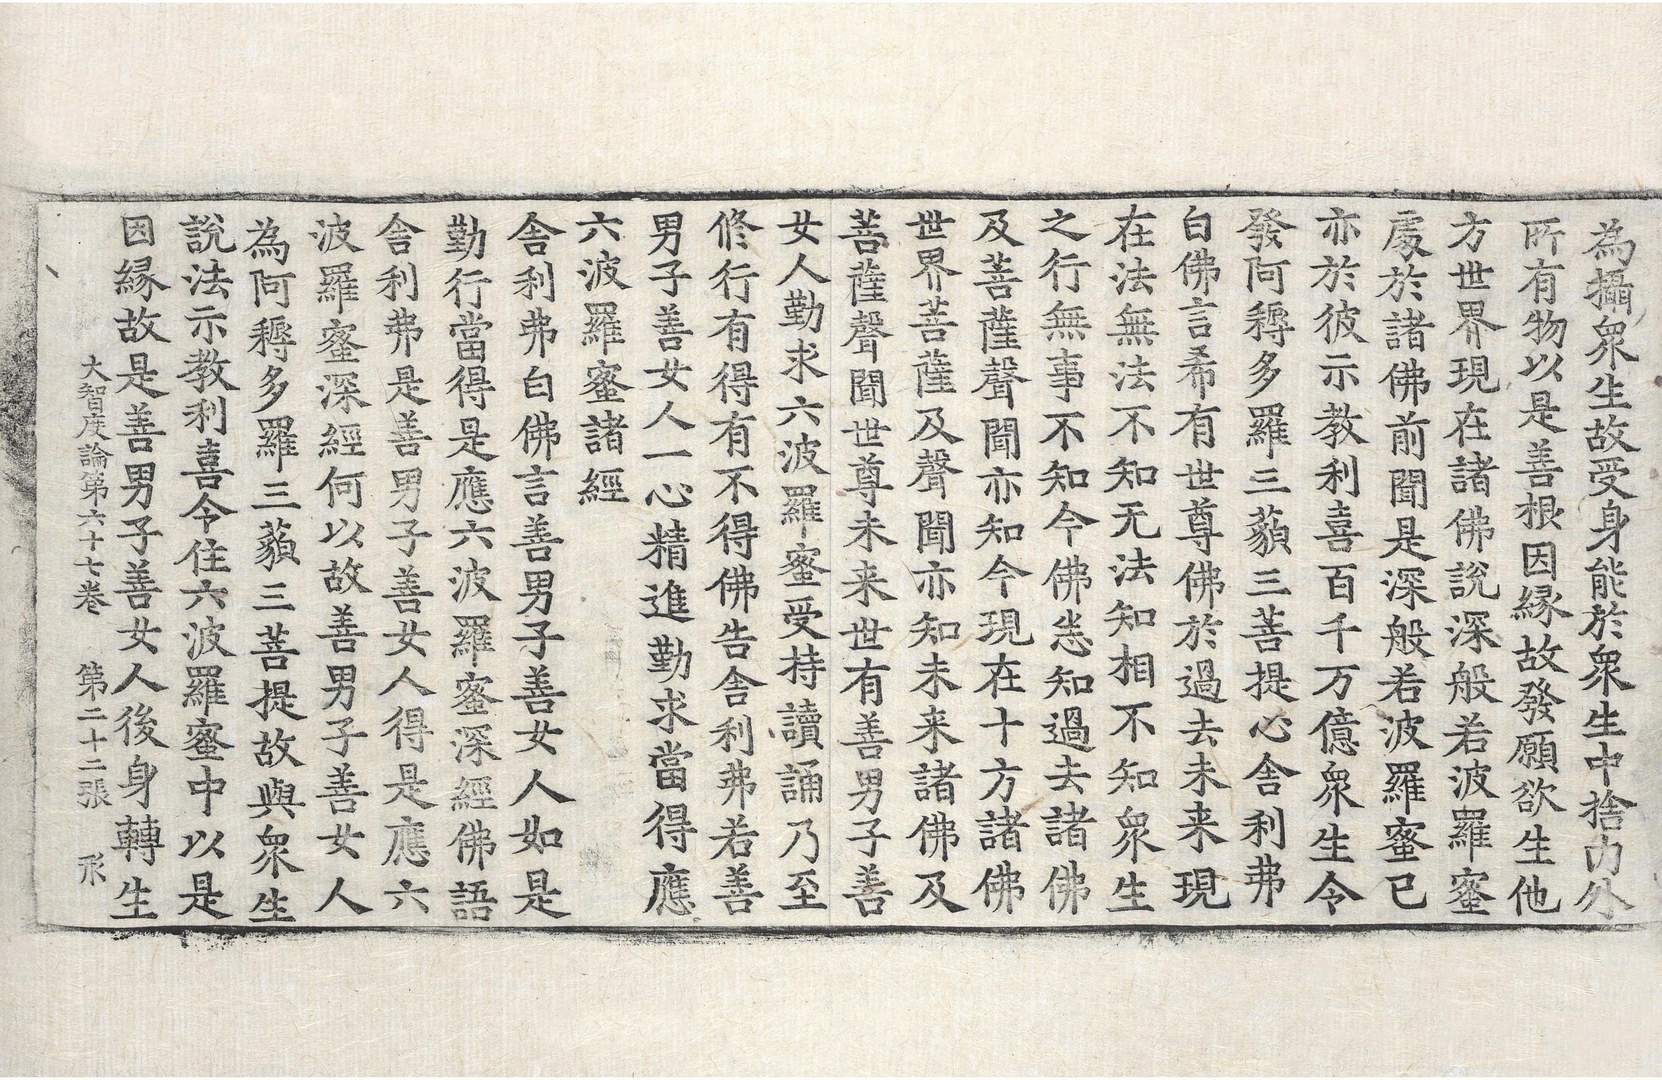 為攝衆生故受身能於衆生中捨内外
所有物以是善根因緣故發願欲生他
方世界現在諸佛說深般若波羅蜜
處於諸佛前聞是深般若波羅蜜已
亦於彼示教利喜百千万億衆生令
發阿耨多羅三藐三菩提心舍利弗
白佛言希有世尊佛於過去未来現
在法無法不知无法知相不知衆生
之行無事不知今佛悉知過去諸佛
及菩薩聲聞亦知今現在十方諸佛
世界菩薩及聲聞亦知未来諸佛及
菩薩聲聞世尊未来世有善男子善
女人勤求六波羅蜜受持讀誦乃至
修行有得有不得佛告舍利弗若善
男子善女人一心精進勤求當得應
六波羅蜜諸經
舍利弗白佛言善男子善女人如是
勤行當得是應六波羅蜜深經佛語
舍利弗是善男子善女人得是應六
波羅蜜深經何以故善男子善女人
為阿耨多羅三藐三菩提故與衆生
說法示教利喜令住六波羅蜜中以是
因緣故是善男子善女人後身轉生
大智度論第六十七卷 第二十二張 形